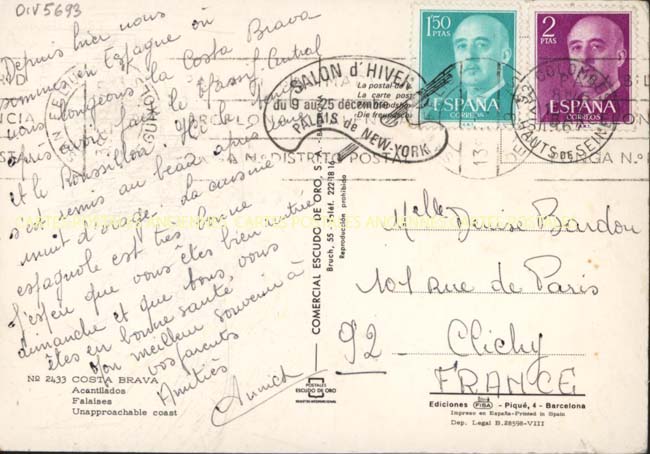 DIV5693
Depuis hier nous
sommes en Espagne où
nous longeons la Costa Brava
après avoir vu le Massif Central
et le Roussillon. Ici le temps
s'est remis au beau après une
nuit d'orage. La cuisine
espagnole est très bonne
J'espère que vous êtes bien
dimanche et que tous, vous
êtes en bonne santé,
Mon meilleur souvenir à
vos parents
Amitiés
Annick
Nº 2433 COSTA BRAVA
Acantilados
Falaises
Unapproachable coast
COMERCIAL ESCUDO DE ORO, S.A.
Bruch, 55 - Teléf. 222 18 16
Reproducción prohibida
POSTALES
ESCUDO DE ORO
SALON d'HIVER
du 9 au 25 décembre
PALAIS de NEW-YORK
La postal de
La carte post
Die freundsch
Nº DISTRITO POSTAL
1'50
PTAS
ESPAÑA
CORREOS
2
PTAS
ESPAÑA
CORREOS
COLOMBES
HANTS DE SEINE
CARTES POSTALES ANCIENNES
Melle Denise Bardon
101 Rue de Paris
92 - Clichy
FRANCE
Ediciones FISA - Piqué, 4 - Barcelona
Impreso en España-Printed in Spain
Dep. Legal B. 28598-VIII